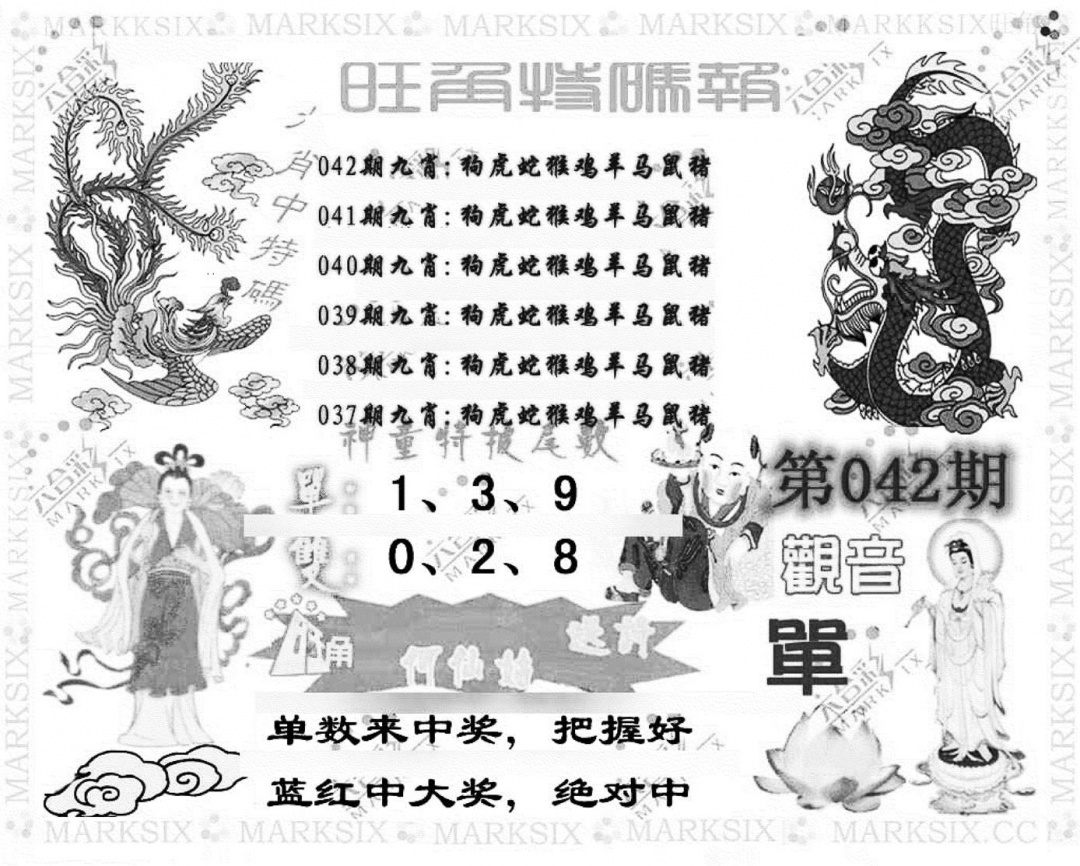 MARKKSIX MARKSIX MARKSIX MARKSIX MARKKSIX
旺角特碼報
肖中特碼
042期九肖:狗虎蛇猴鸡羊马鼠猪
041期九肖:狗虎蛇猴鸡羊马鼠猪
040期九肖:狗虎蛇猴鸡羊马鼠猪
039期九肖:狗虎蛇猴鸡羊马鼠猪
038期九肖:狗虎蛇猴鸡羊马鼠猪
037期九肖:狗虎蛇猴鸡羊马鼠猪
神童特披尾數
單: 1、3、9
雙: 0、2、8
第042期
觀音
單
何仙姑
单数来中奖，把握好
蓝红中大奖，绝对中
MARKSIX MARKSIX MARKSIX MARKSIX MARKSIX.CC